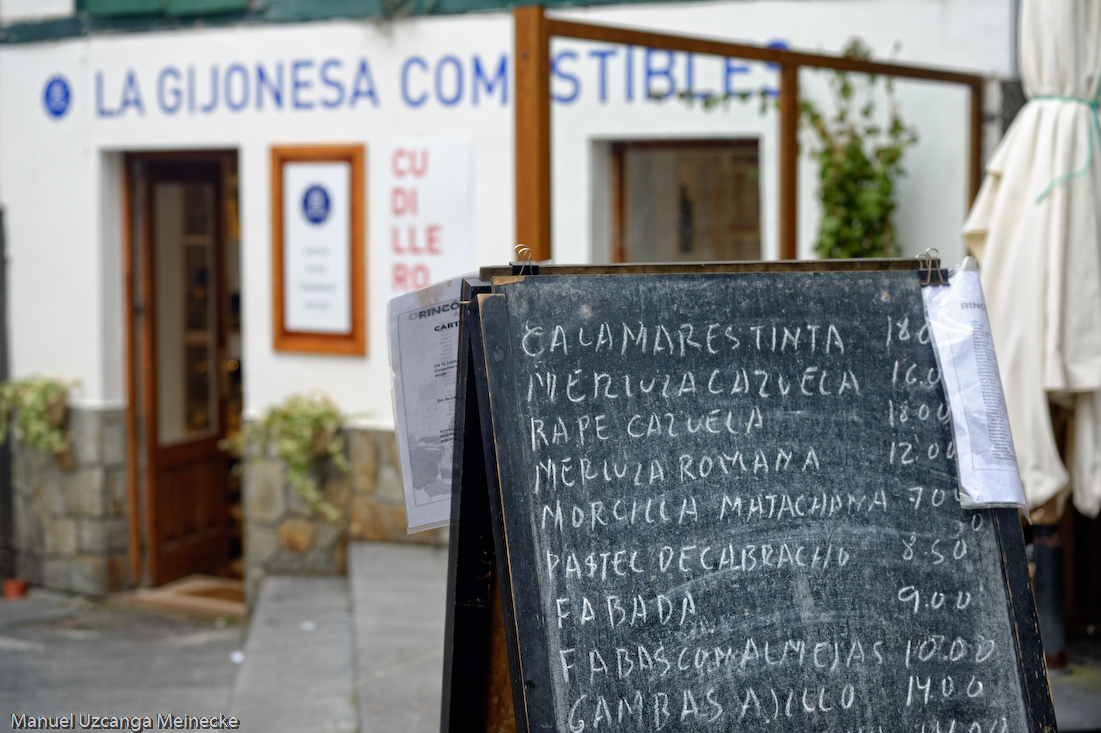 LA GIJONESA COM STIBLES
CU
DI
LLE
RO
RINCÓ
CART
RINC
CALAMARES TINTA 18.0
MERLUZA CAZUELA 16.0
RAPE CAZUELA 18.00
MERLUZA ROMANA 12.00
MORCILLA MATACHANA 7.00
PASTEL DE CABRACHO 8.50
FABADA 9.00
FABAS CON ALMEJAS 18.00
GAMBAS AJILLO 14.00
Manuel Uzcanga Meinecke